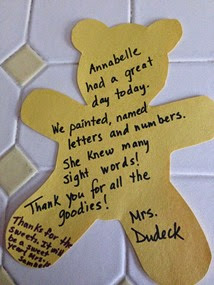 Annabelle
had a great
day today.
We painted, named
letters and numbers.
She knew many
sight words!
Thank you for all the
goodies!
Mrs.
Dudeck
Thanks for the
sweets. It will
be a sweet
year! Mrs.